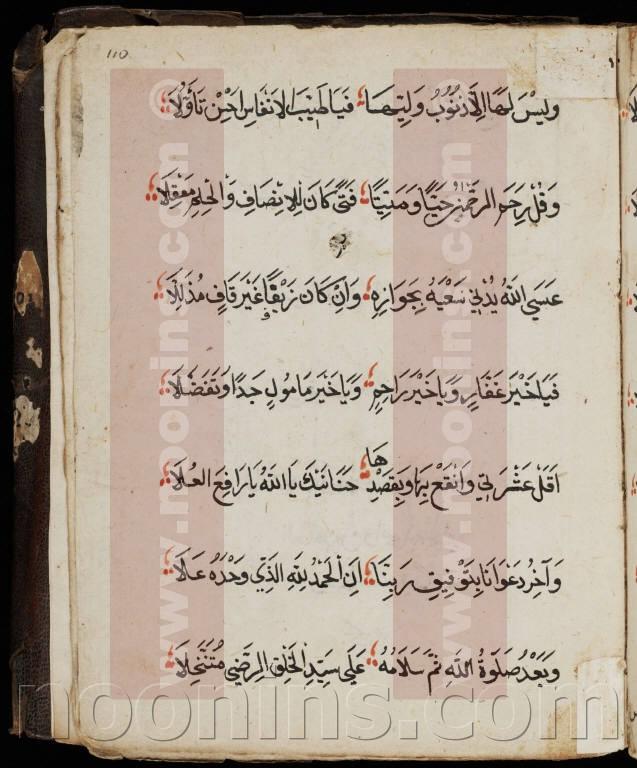 110
وليس لها الا ذنوب وليها ؛ فيا طيب الانفاس احسن تأولا ؛
وقل رحم الرحمن حيا وميتا ؛ فتى كان للانصاف والحلم معقلا ؛
عسى الله يدني سعيه بجوازه ؛ وان كان زيفا غير خاف مذللا ؛
فيا خير غفار ويا خير راحم ؛ ويا خير مامول جدا وتفضلا ؛
اقل عثرتي وانفع بها وبقصدها ؛ حنانيك يا الله يا رافع العلا ؛
وآخر دعوانا بتوفيق ربنا ؛ ان الحمد لله الذي وحده علا ؛
وبعد صلوة الله ثم سلامه ؛ على سيد الخلق الرضي متنخلا ؛
www.noonins.com
www.noonins.com
noonins.com